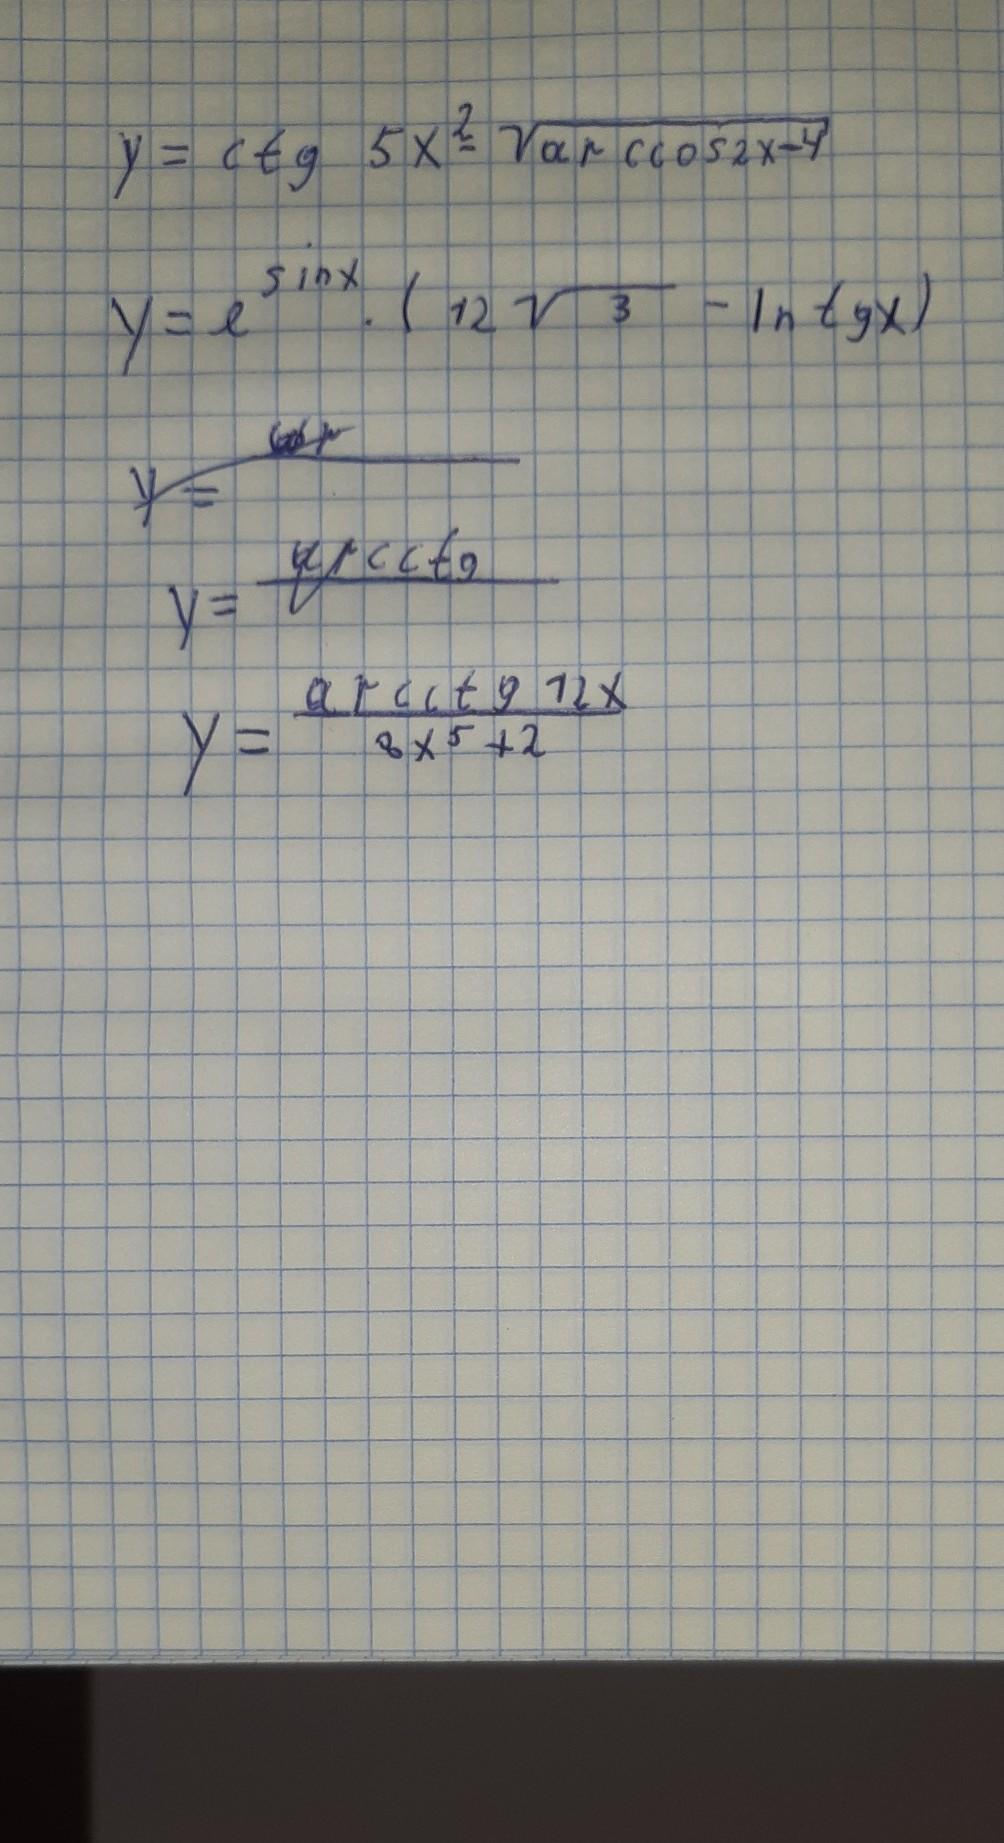 y = ctg 5x² = √arccos2x-4
y = e^sinx · ( 12 √3 - ln tgx )
y =
y = arcctg
y = arcctg 12x / 8x⁵ + 2